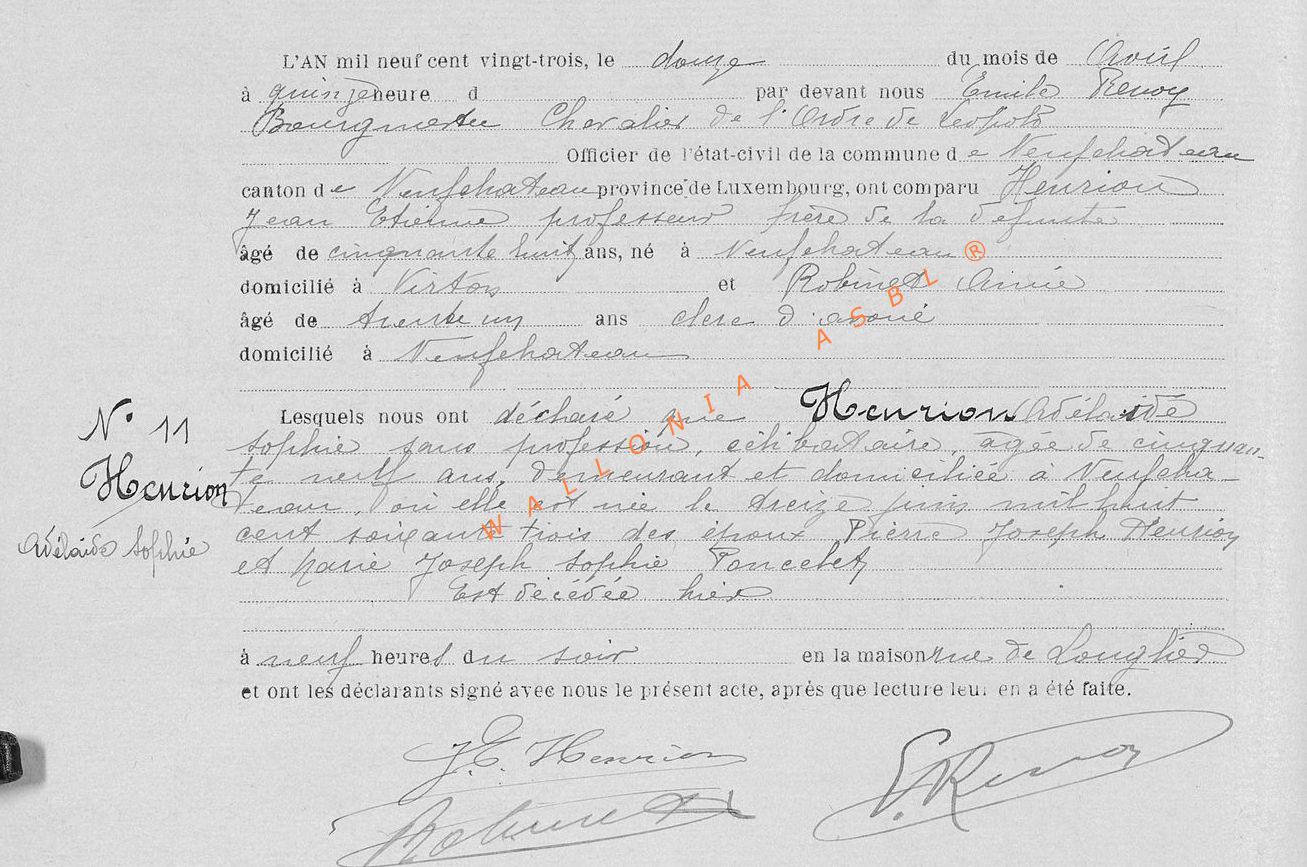 L'AN mil neuf cent vingt-trois, le douze du mois de Avril
à quinze heure d par devant nous Emile Renoy
Bourgmestre Chevalier de l'Ordre de Léopold
Officier de l'état-civil de la commune de Neufchateau
canton de Neufchateau province de Luxembourg, ont comparu Henrion
Jean Etienne professeur frère de la défunte
âgé de cinquante huit ans, né à Neufchateau
domicilié à Virton et Robinet Aimé
âgé de trente un ans clerc d'avoué
domicilié à Neufchateau
Lesquels nous ont déclaré que Henrion Adélaïde
Sophie sans profession, célibataire âgée de cinquan-
te neuf ans, demeurant et domiciliée à Neufcha-
teau, où elle est née le treize juin mil huit
cent soixante trois des époux Pierre Joseph Henrion
et Marie Joseph Sophie Poncelet
Est décédée hier
à neuf heures du soir en la maison rue de Longlier
et ont les déclarants signé avec nous le présent acte, après que lecture leur en a été faite.
N° 11
Henrion
Adélaïde Sophie
J. E. Henrion
Robinet
E. Renoy
WALLONIA ASBL ®